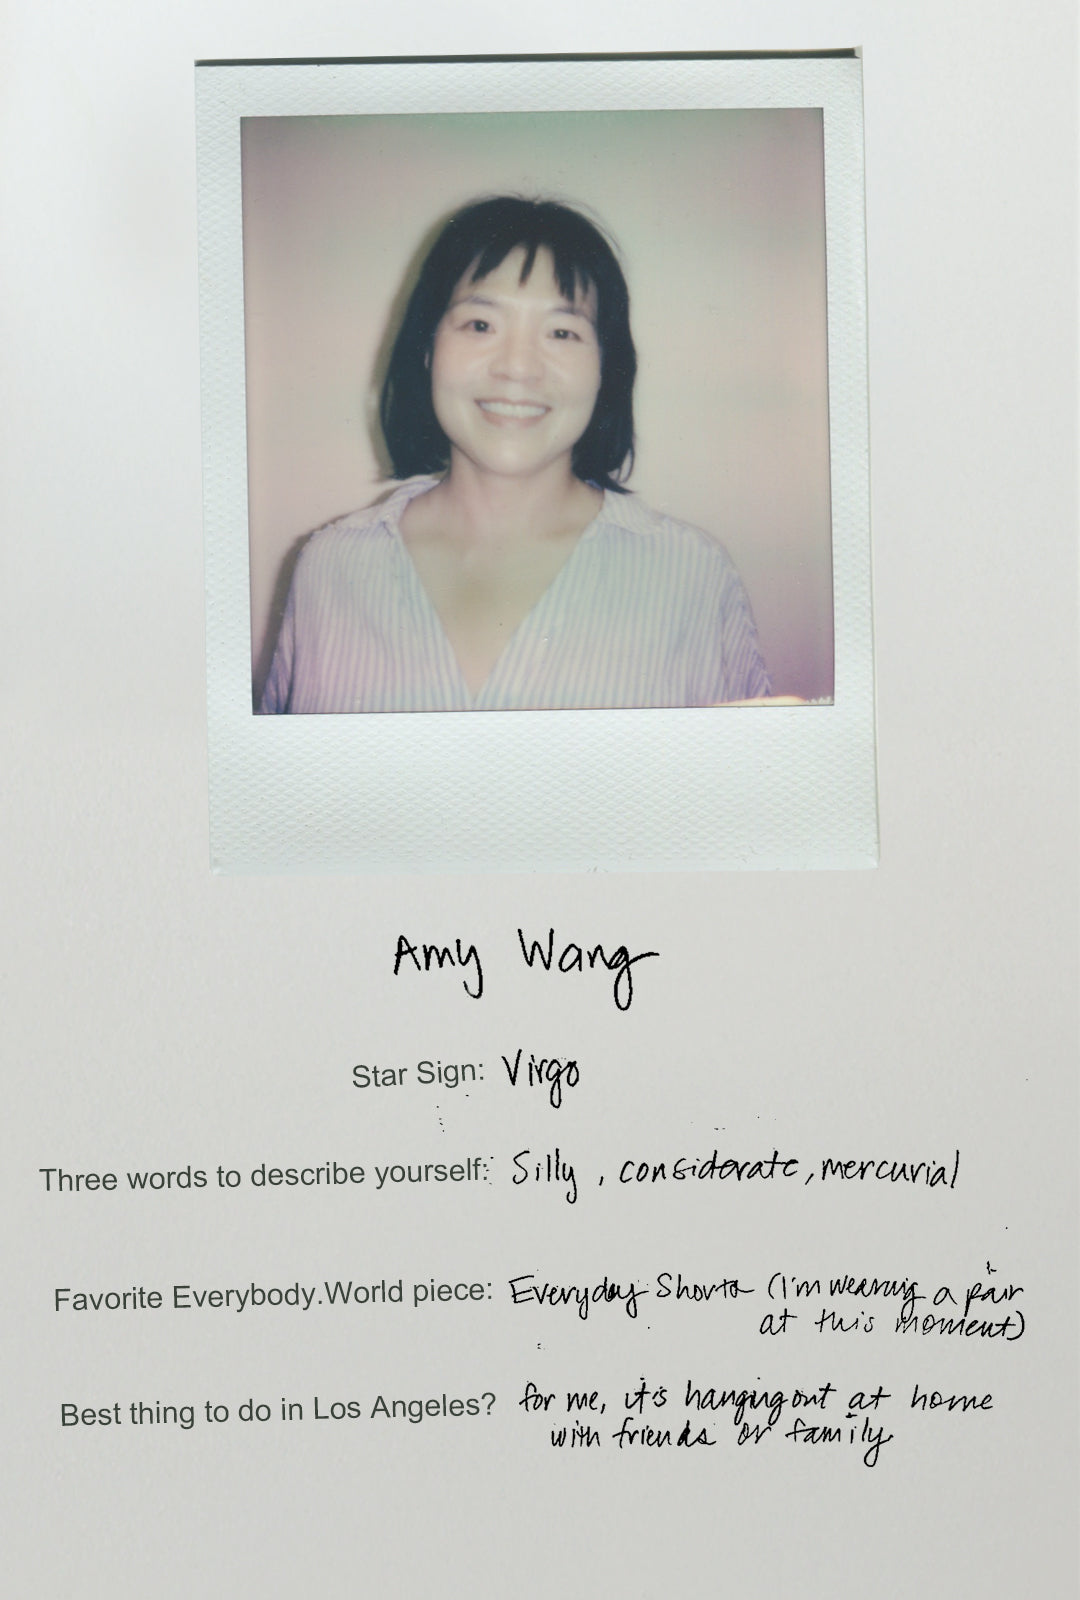 Amy Wang
Star Sign: Virgo
Three words to describe yourself: Silly, considerate, mercurial
Favorite Everybody.World piece: Everyday Shorts (I'm wearing a pair
at this moment)
Best thing to do in Los Angeles? for me, it's hanging out at home
with friends or family